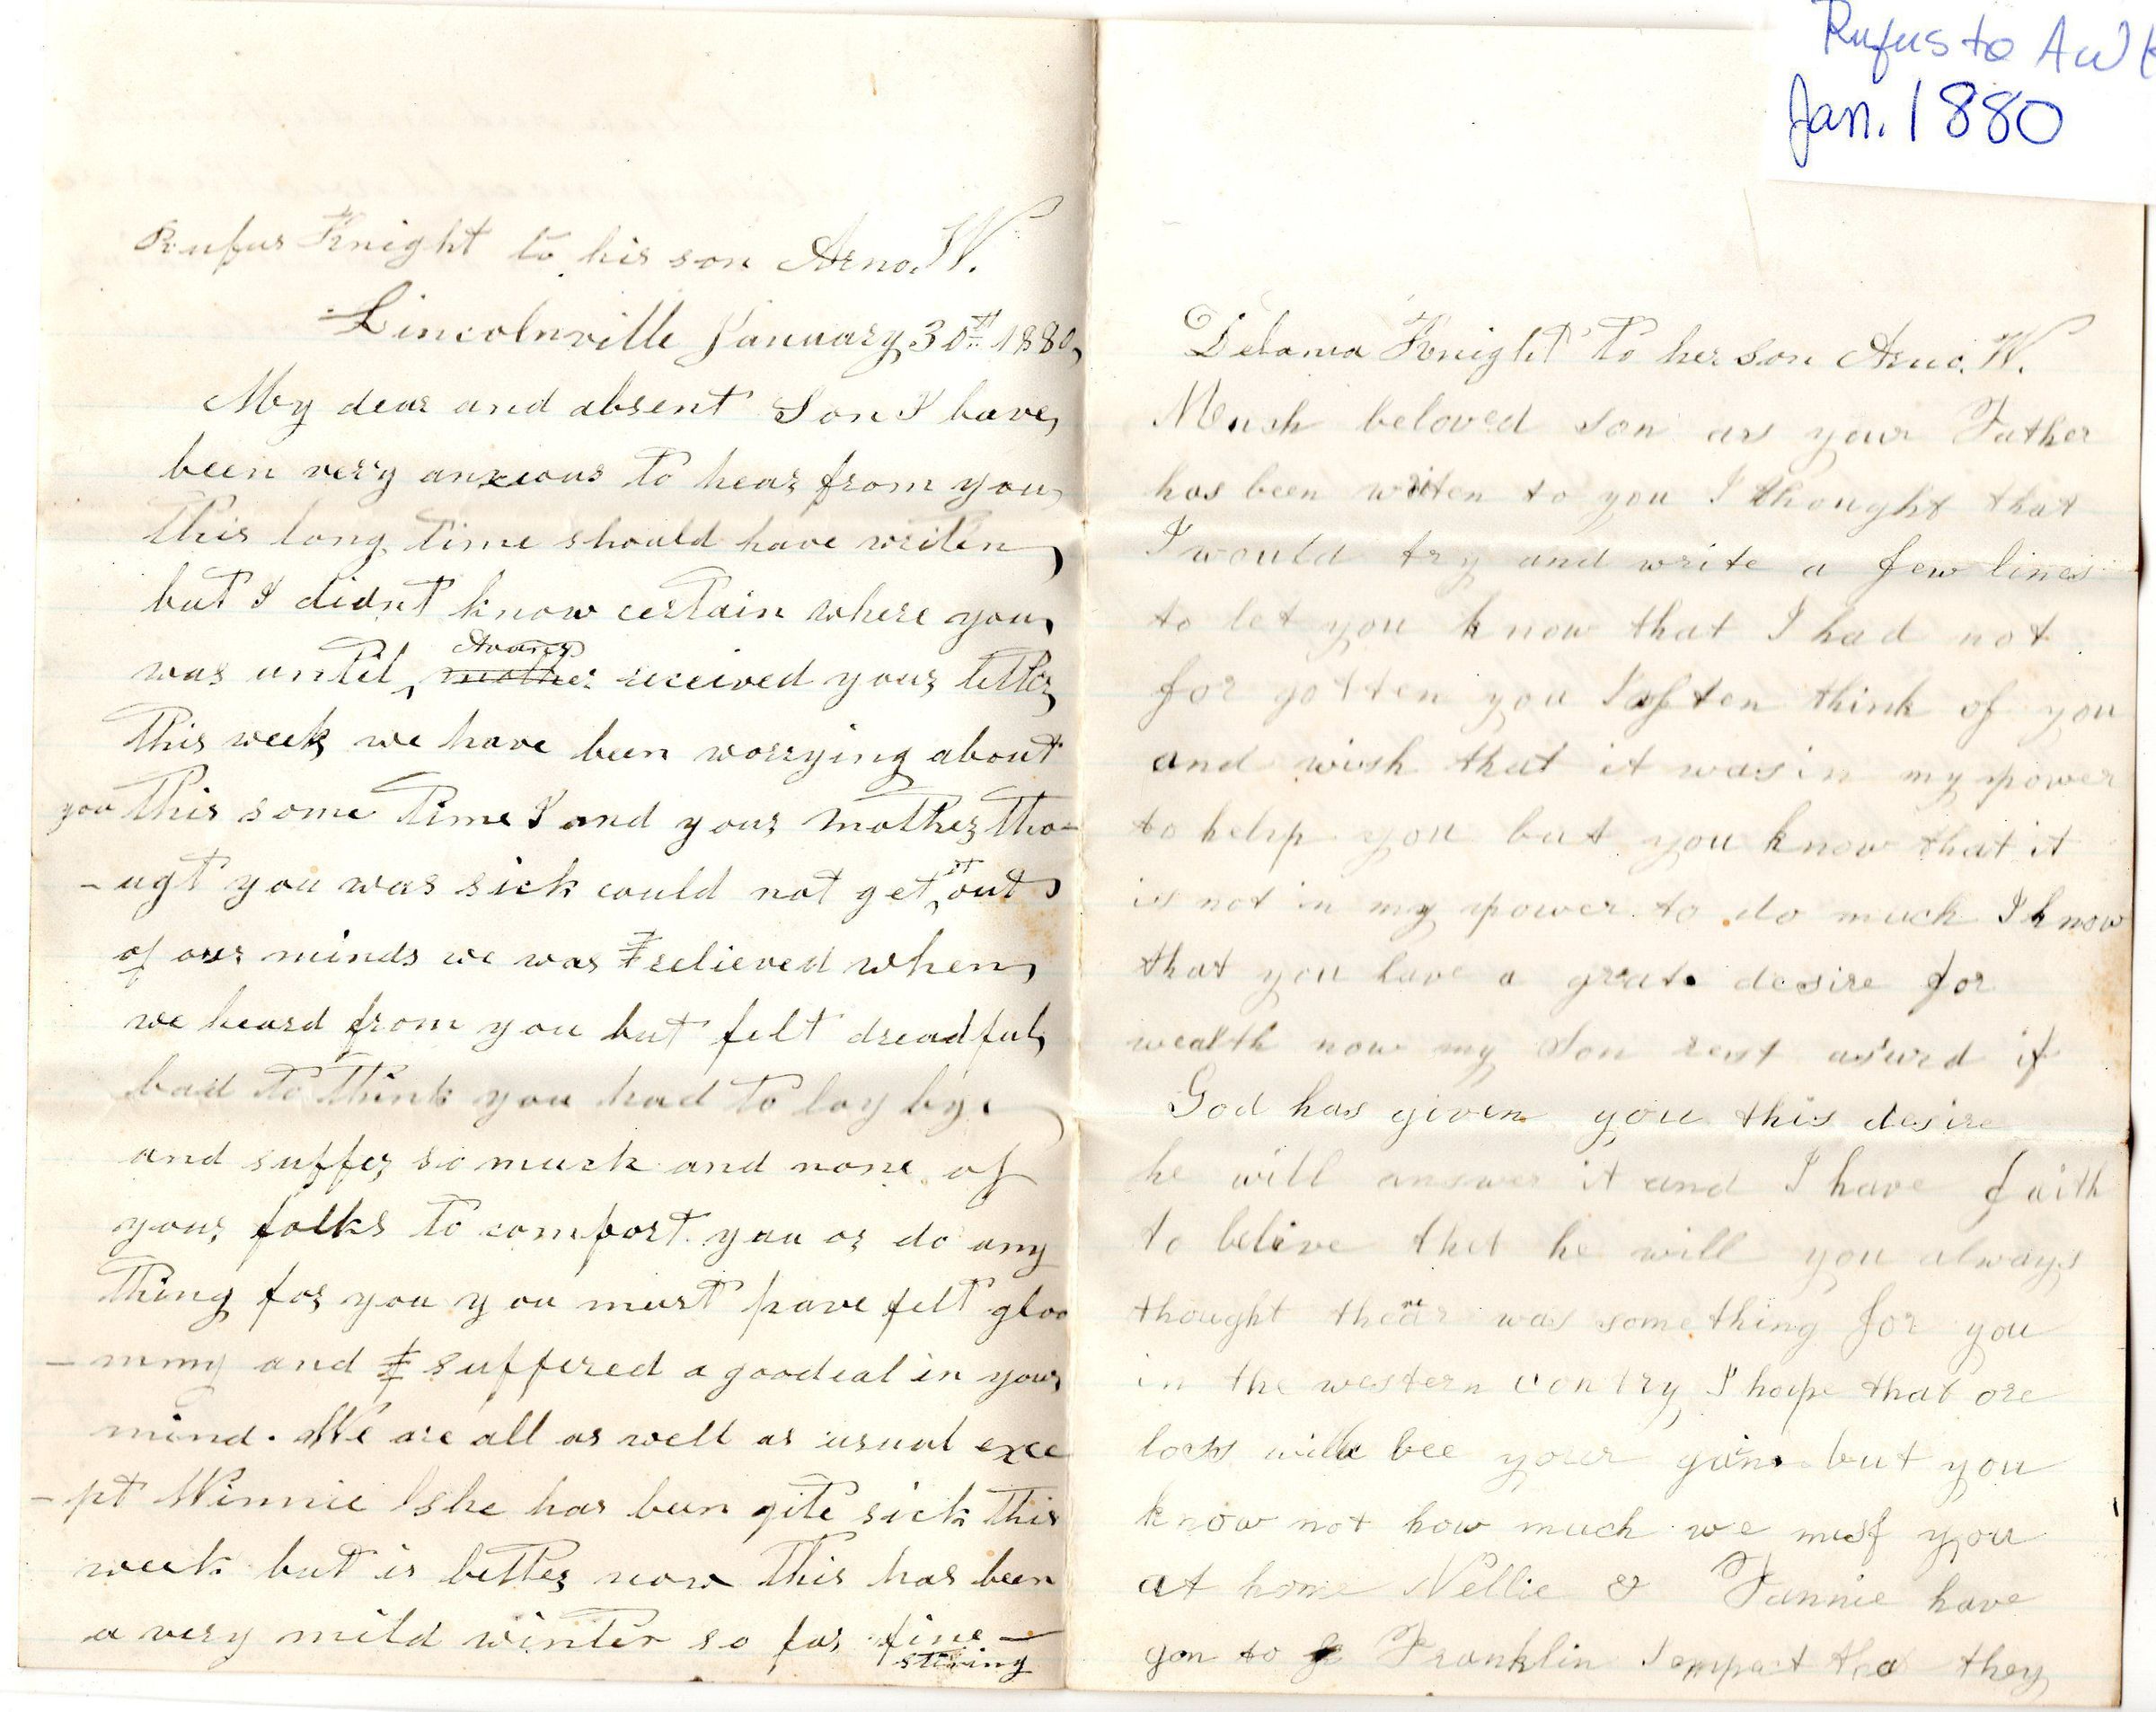 Rufus to AW
Jan. 1880
Rufus Knight to his son Arno. W.
Lincolnville January 30th 1880,
My dear and absent Son I have
been very anxious to hear from you
this long time should have writen
but I didnt know certain where you
was until mother received your letter
this week we have been worrying about
you this some time I and your mother tho-
-ugt you was sick could not get it out
of our minds we was relieved when
we heard from you but felt dreadful
bad to think you had to lay by
and suffer so much and none of
your folks to comfort you or do any
thing for you you must have felt gloo
-mmy and suffered a goodeal in your
mind. We are all as well as usual exce
-pt Winnie she has been qite sick this
week but is better now This has been
a very mild winter so far fine
Knight To her son Arno. W.
Mush beloved son as your Father
has been writen to you I thought that
I would try and write a few lines
to let you know that I had not
for gotten you I often think of you
and wish that it was in my power
to help you but you know that it
is not in my power to do much I know
that you have a grat desire for
wealth now my Son rest asured if
God has given you this desire
he will answer it and I have faith
to belive that he will you always
thought was something for you
in the western contry I hope that ore
loss will bee your gain but you
know not how much we miss you
at home Nellie & Fannie have
gon to Franklin I expect they